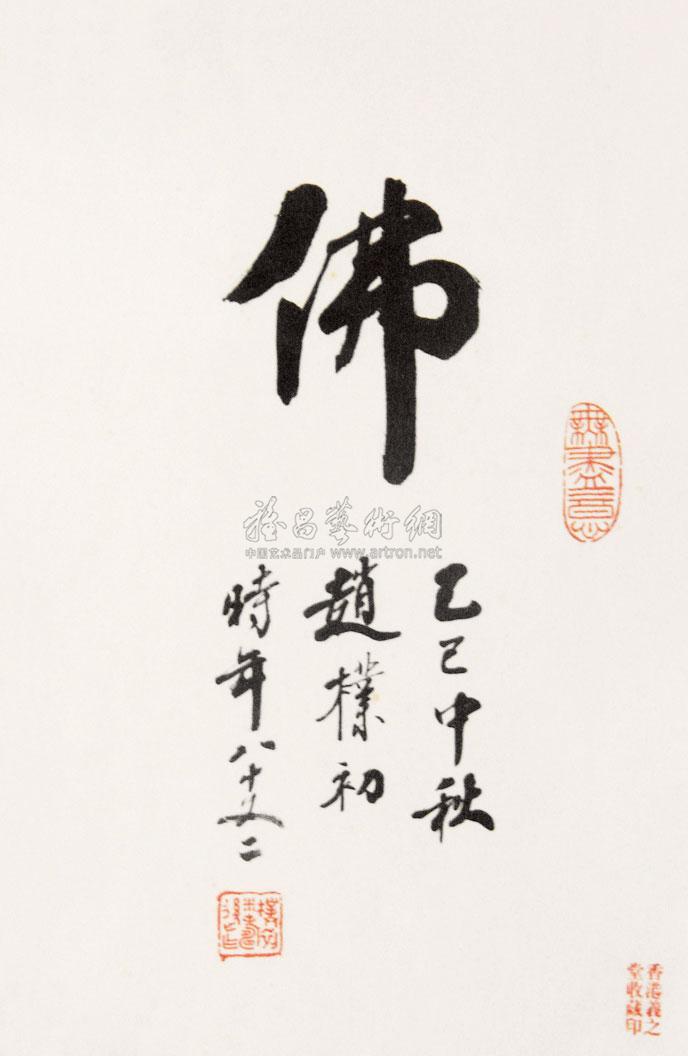 佛
乙已中秋
趙樸初
時年八十又二
無盡意
雅昌藝術網
中国艺术品门户 www.artron.net
香港義之
堂收藏印